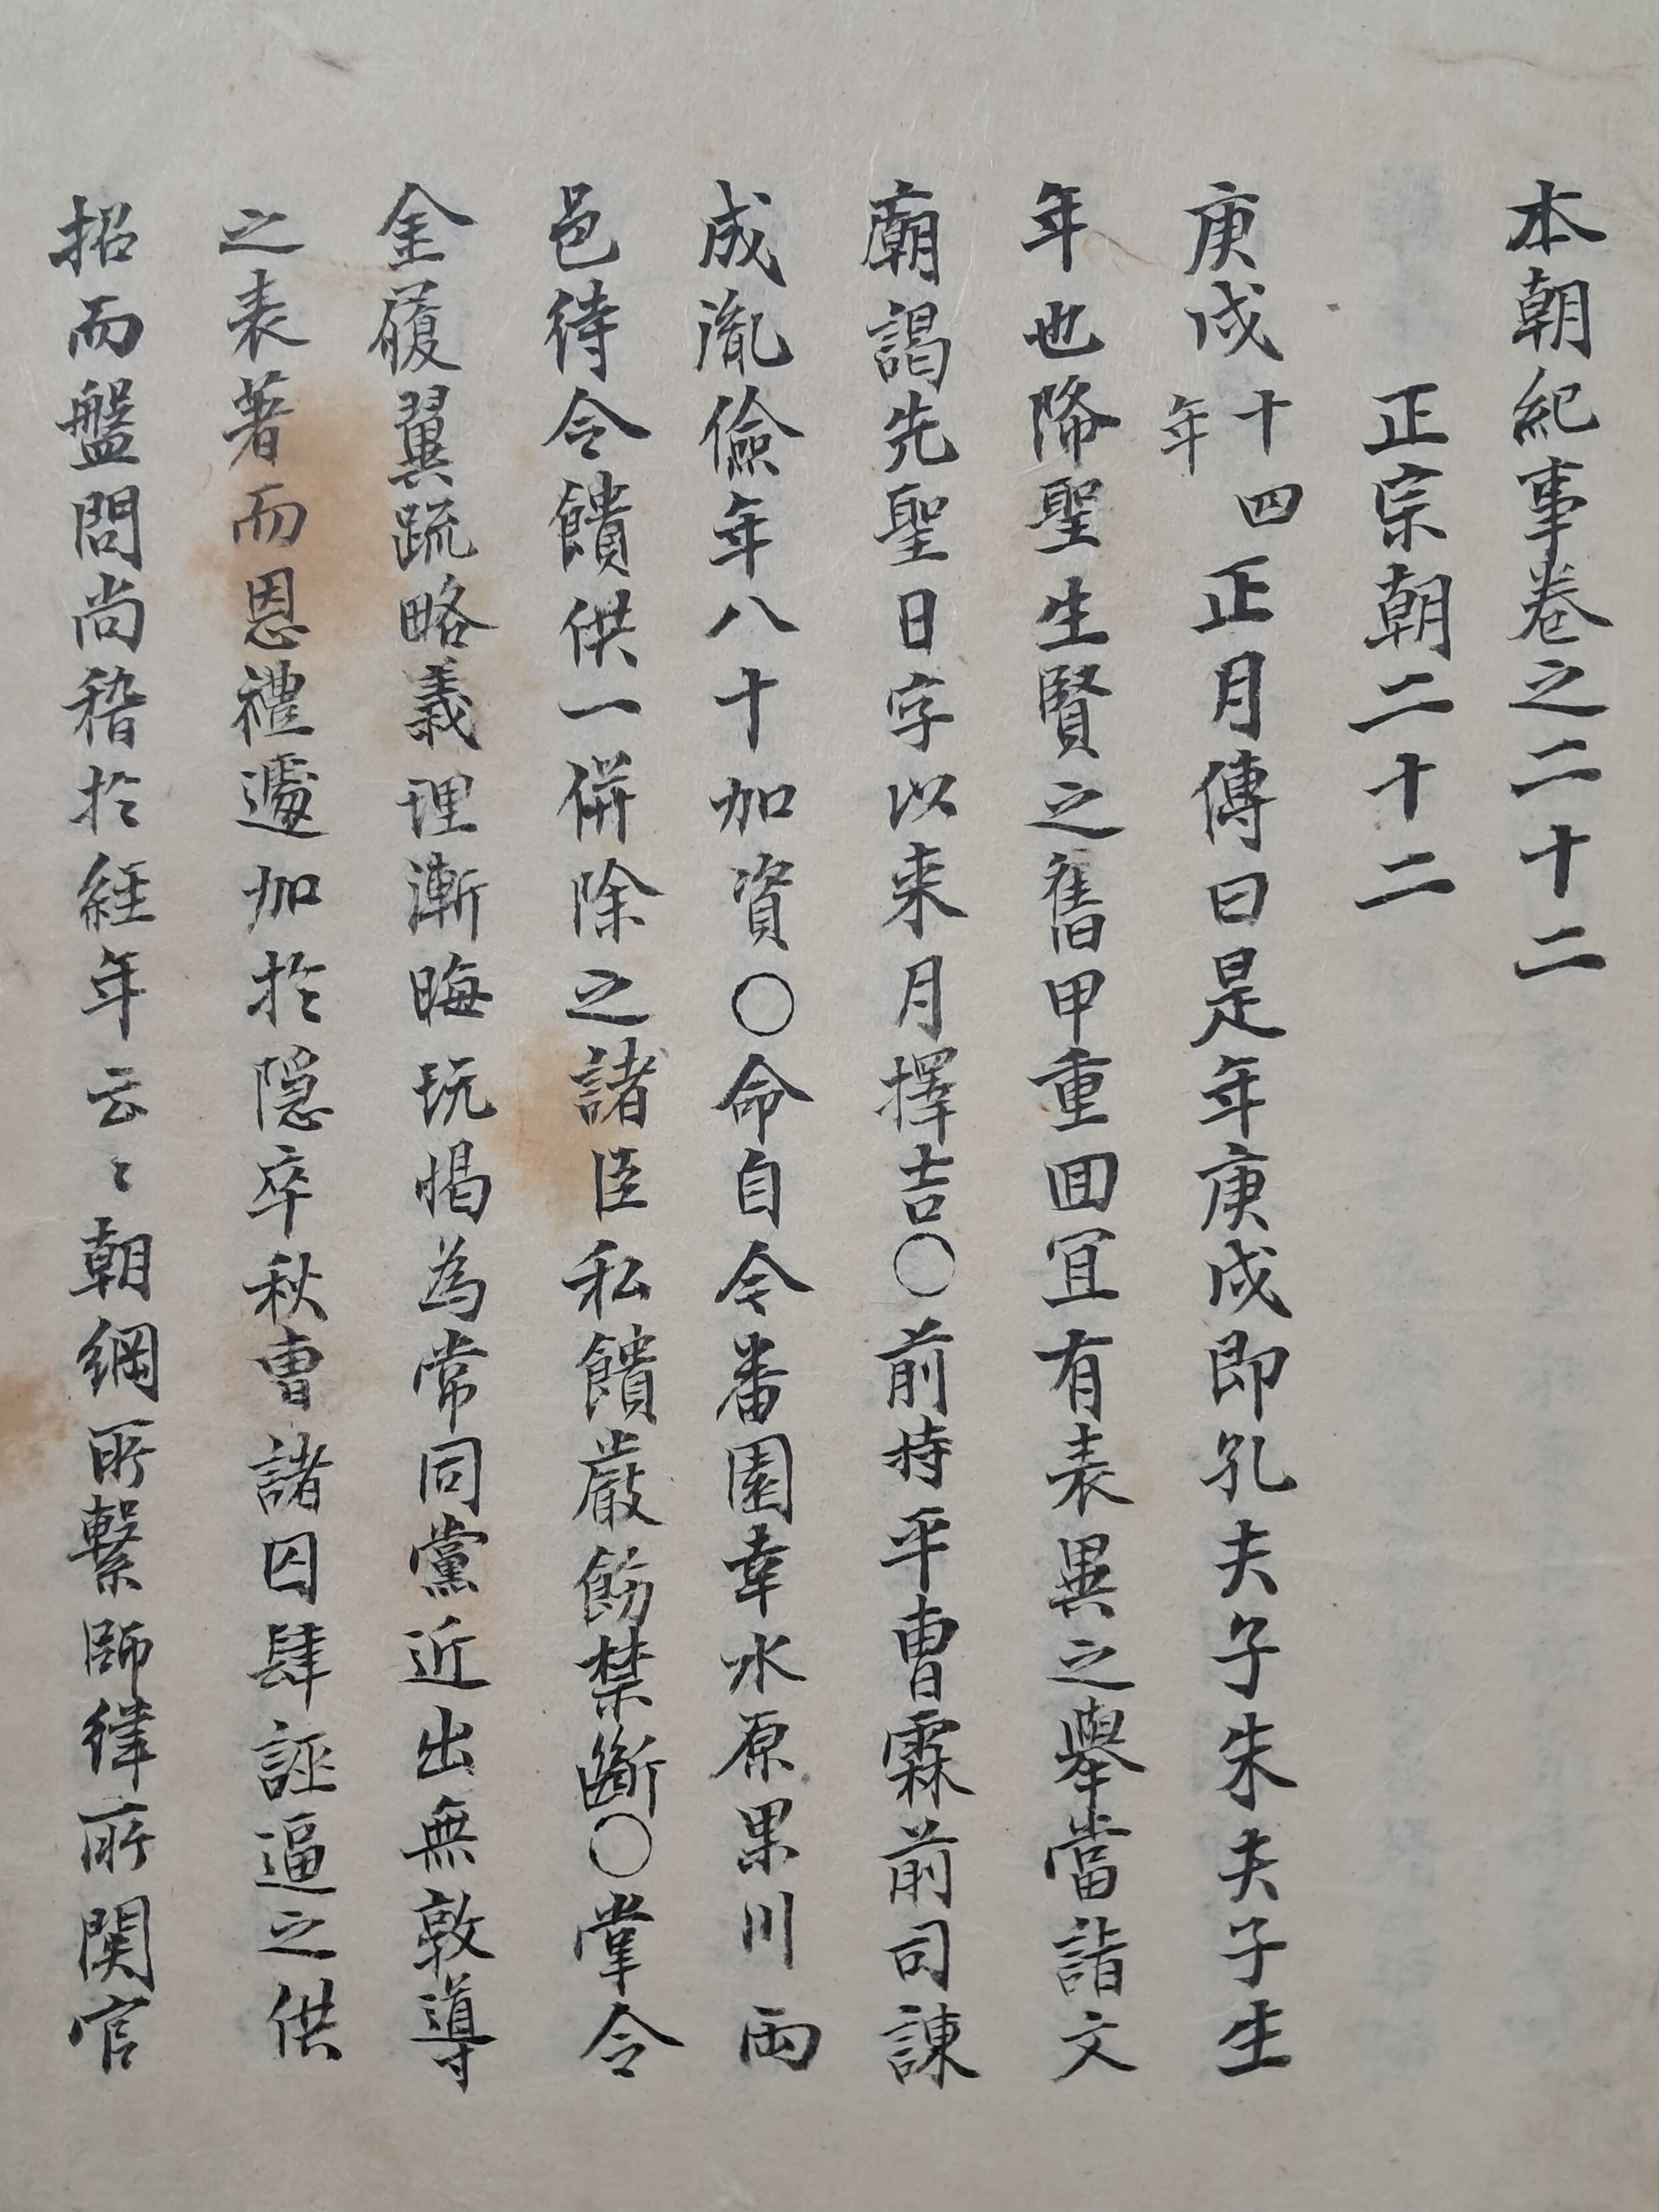 本朝紀事卷之二十二
正宗朝二十二
庚戌十四年正月傳曰是年庚戌即孔夫子朱夫子生
年也降聖生賢之舊甲重回宜有表異之舉當詣文
廟謁先聖日字以来月擇吉○前持平曺霖前司諫
成胤儉年八十加資○命自今番園幸水原果川兩
邑待令饋供一併除之諸臣私饋嚴飭禁斷○掌令
金履翼疏略義理漸晦玩愒為常同黨近出無敦導
之表著而恩禮遽加於隱卒秋曺諸囚肆誣逼之供
招而盤問尚稽於經年云〻朝綱所繫師緯所関官